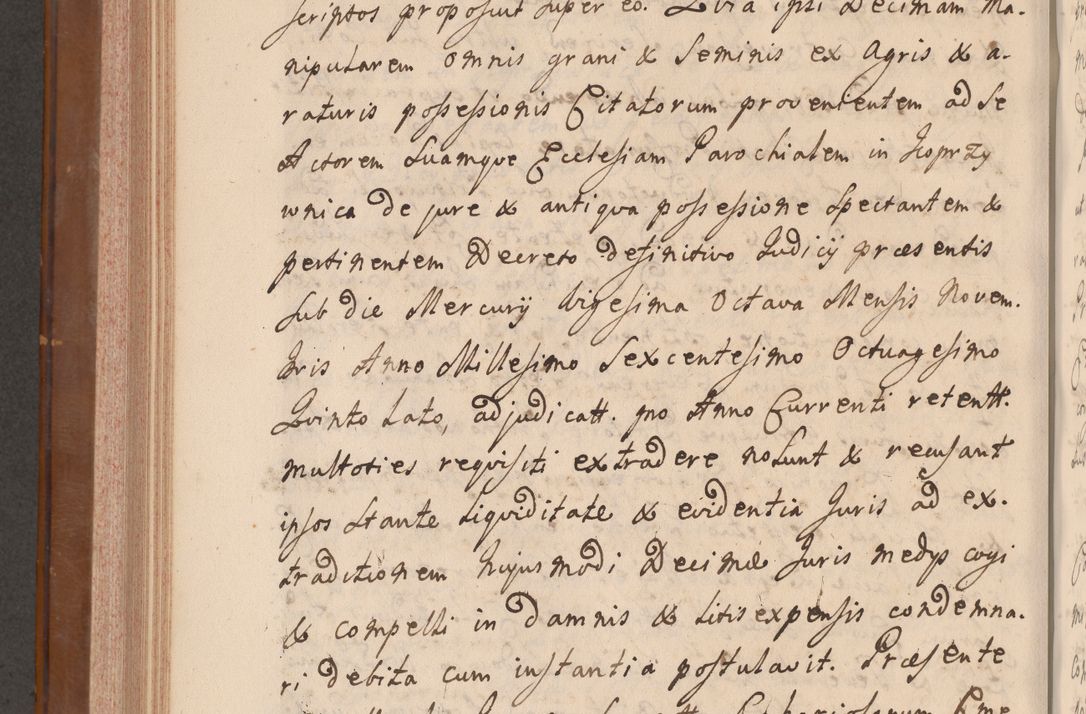 scriptos proposuit super eo. Quia ipsi Decimam Ma-
nipularem omnis grani & Seminis ex Agris & a-
raturis possessionis Citatorum provenientem ad se
Actorem Suamque Ecclesiam Parochialem in Koprzy
wnica de jure & antiqua possessione spectantem &
pertinentem Decreto definitivo Judicij præsentis
sub die Mercurij vigesima Octava Mensis Novem-
bris Anno Millesimo Sexcentesimo Octuagesimo
Quinto lato, adjudicatt. pro Anno Currenti retentt.
multoties requisiti extradere nolunt & recusant
ipsos stante liquiditate & evidentia Juris ad ex-
traditionem hujusmodi Decimæ Juris medijs cogi
& compelli in damnis & litis expensis condemna-
ri debita cum instantia postulavit. Præsente